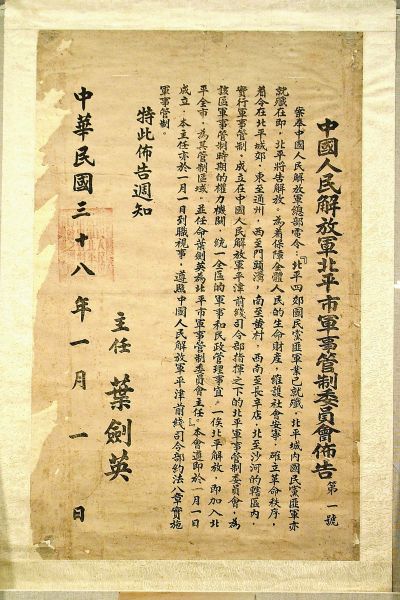 中國人民解放軍北平市軍事管制委員會佈告 第一號
案奉中國人民解放軍總部電令：『北平四郊國民黨匪軍業已就殲，北平城內國民黨匪軍亦
就殲在即，北平將告解放，為着保障全體人民的生命財產，維護社會安寧，確立革命秩序，
着令在北平城郊，東至通州，西至門頭溝，南至黃村，西南至長辛店，北至沙河的轄區內，
實行軍事管制，成立在中國人民解放軍平津前綫司令部指揮之下的北平軍事管制委員會，為
該區軍事管制時期的權力機關，統一全區的軍事和民政管理事宜。一俟北平解放，即加入北
平全市，為其管制區域。並任命葉劍英為北平市軍事管制委員會主任。』本會遵即於一月一日
成立，本主任亦於一月一日到職視事，遵照中國人民解放軍平津前綫司令部約法八章實施
軍事管制。
特此佈告週知
主任 葉劍英
中華民國三十八年一月一日